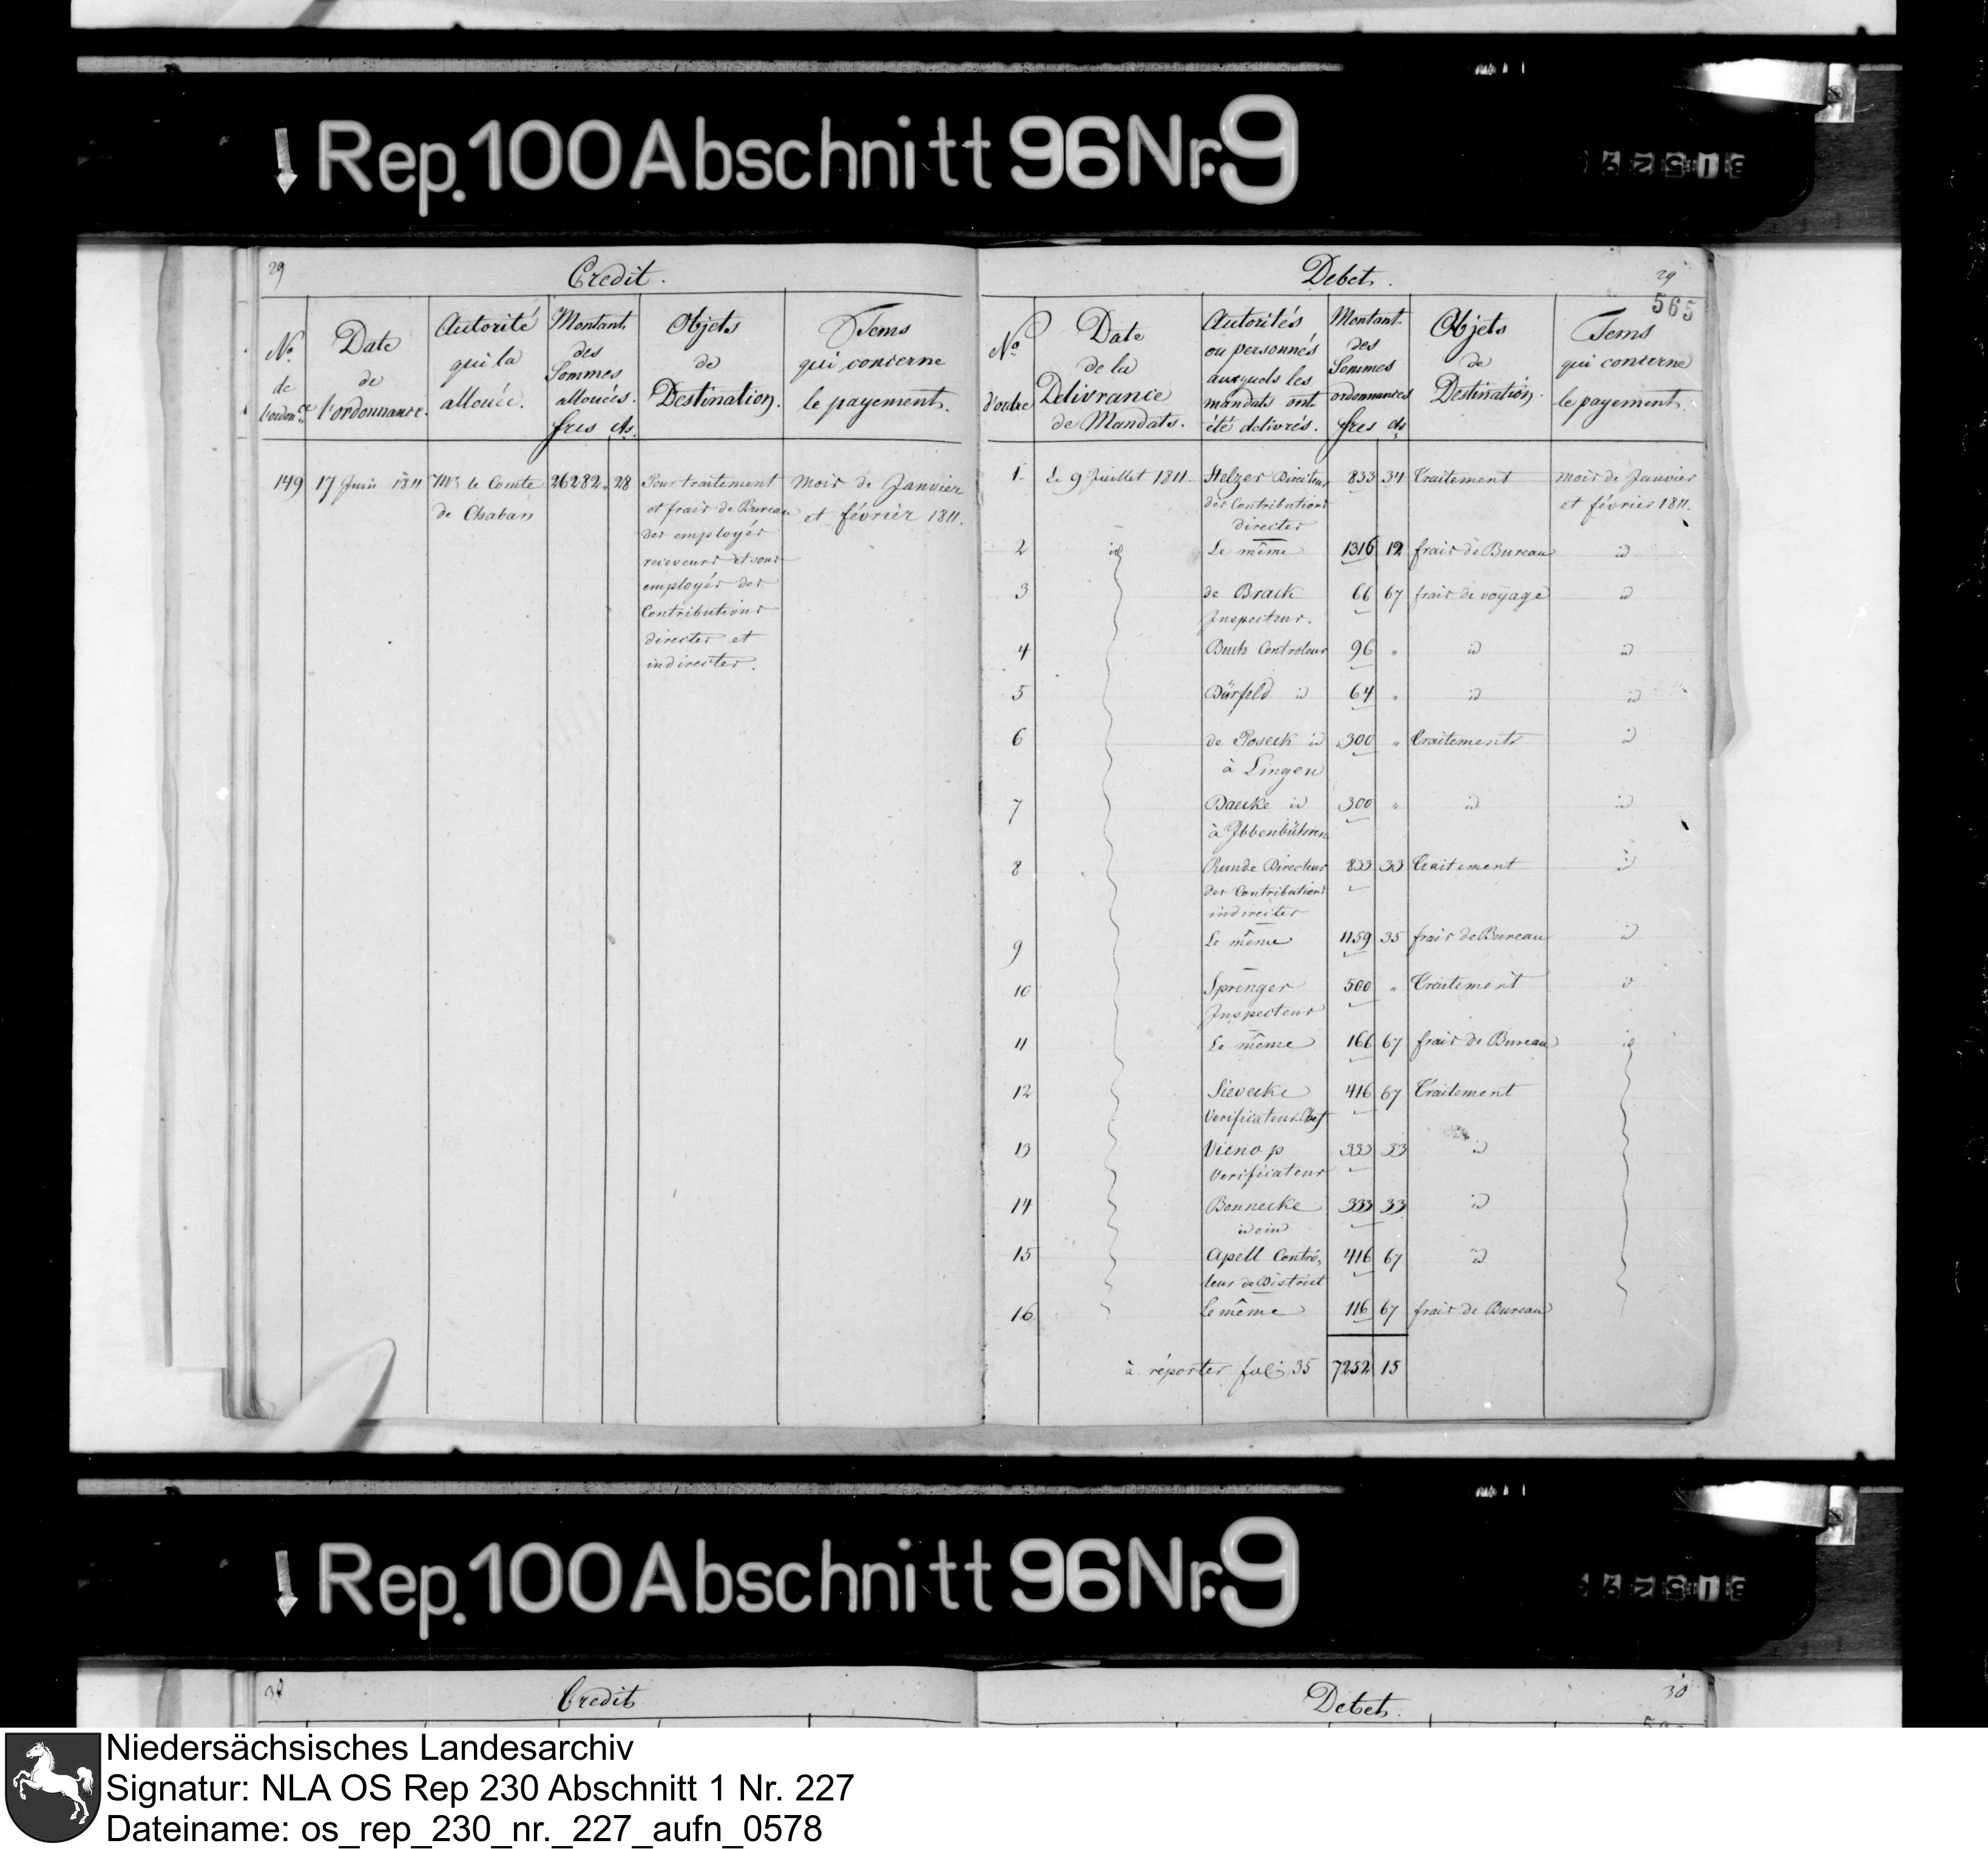 Rep. 100 Abschnitt 96 Nr. 9
31529
29
Credit.
No. de l'ordonce
Date de l'ordonnance.
Autorité qui la allouée.
Montant des Sommes allouées. frcs cts.
Objets de Destination.
Tems qui concerne le payement.
149 17 Juin 1811 Mr. le Comte 26282. 28 Pour traitement Mois de Janvier
de Chaban et frais de Bureau et février 1811.
des employés
receveurs et sous
employés des
Contributions
directes et
indirectes.
Debet.
29
565
No. d'ordre
Date de la Delivrance de Mandats.
Autorités ou personnes auxquels les mandats ont été delivrés.
Montant des Sommes ordonnancées frcs cts
Objets de Destination.
Tems qui concerne le payement.
1. Le 9 Juillet 1811 Stelzer Directeur 833 34 Traitement Mois de Janvier
des Contributions et février 1811.
directes
2 id Le même 1316 12 frais de Bureau id
3 de Brack 66 67 frais de voyage id
Inspecteur.
4 Controleur 96 " id id
5 Dürfeld id 64 " id id
6 de Poseck id 300 " Traitements id
à Lingen
7 Daecke id 300 " id id
à Ibbenbühren
8 Runde Directeur 833 33 Traitement id
des Contributions
indirectes
9 Le même 1159 35 frais de Bureau id
10 Sprenger 500 " Traitement id
Inspecteur
11 Le même 166 67 frais de Bureau id
12 Sievecke 416 67 Traitement
Verificateur Chef
13 Vienop 333 33 id
Verificateur
14 Bonnecke 333 33 id
idem
15 Apell Contrô- 416 67 id
leur de District
16 Le même 116 67 frais de Bureau
à réporter fol: 35 7252 15
Rep. 100 Abschnitt 96 Nr. 9
31529
30
Credit
Debet.
30
Niedersächsisches Landesarchiv
Signatur: NLA OS Rep 230 Abschnitt 1 Nr. 227
Dateiname: os_rep_230_nr._227_aufn_0578